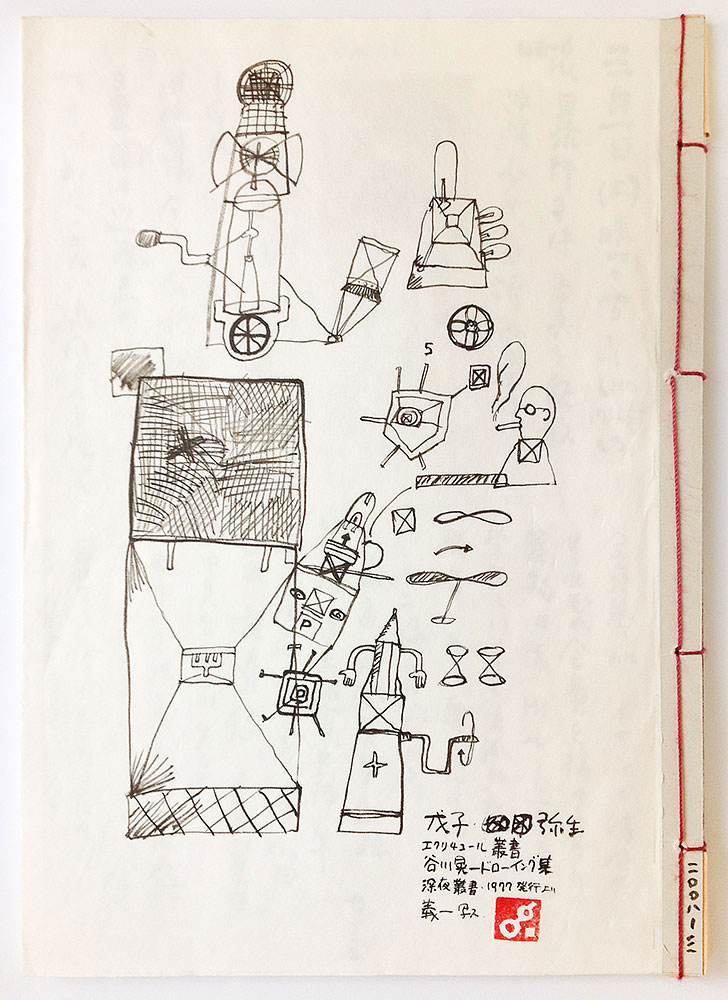 S
P
戊子・弥生
エクリチュール 叢書
谷川晃一ドローイング集
深夜叢書・1977発行より
義一写ス
二〇〇八ー三